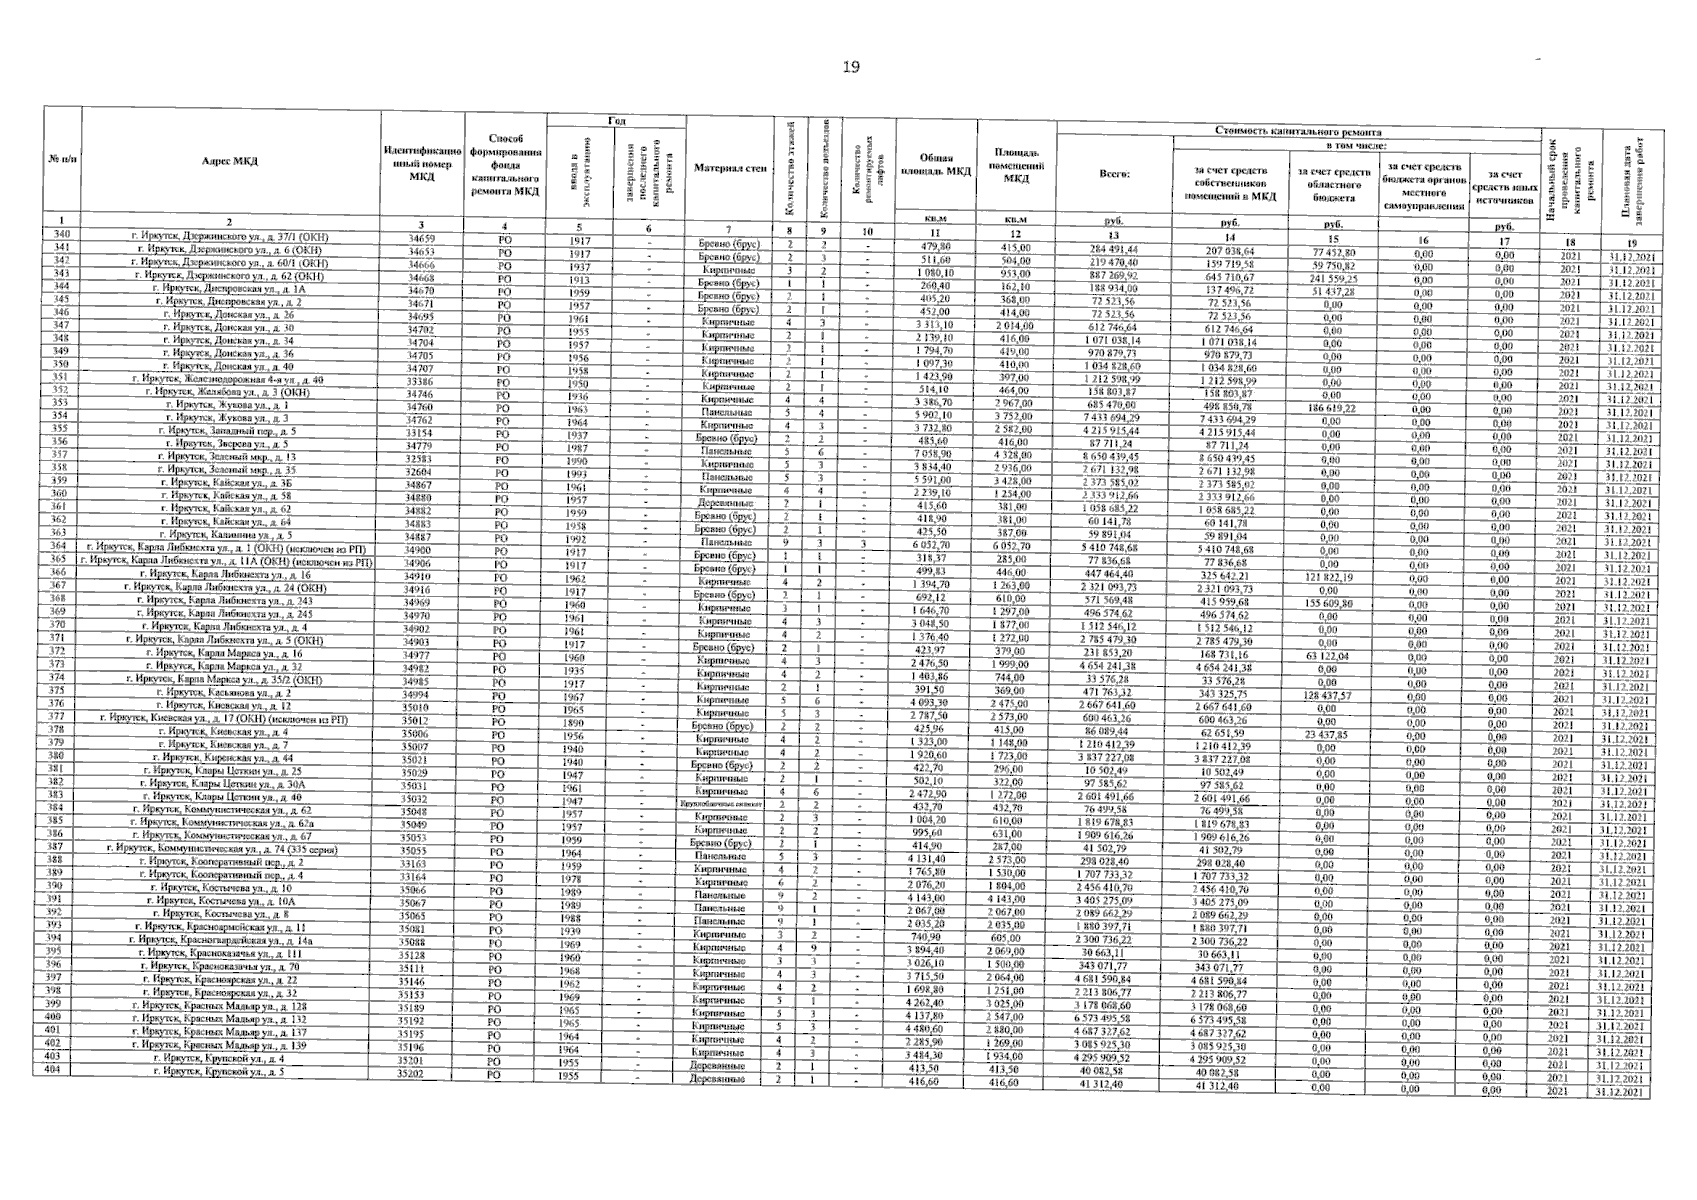 19
№ п/п
Адрес МКД
Идентификационный номер МКД
Способ формирования фонда капитального ремонта МКД
Год
ввода в эксплуатацию
завершения последнего капитального ремонта
Материал стен
Количество этажей
Количество подъездов
Количество ремонтируемых лифтов
Общая площадь МКД
Площадь помещений МКД
Стоимость капитального ремонта
Всего:
в том числе:
за счет средств собственников помещений в МКД
за счет средств областного бюджета
за счет средств бюджета органов местного самоуправления
за счет средств иных источников
Начальный срок проведения капитального ремонта
Плановая дата завершения работ
кв.м кв.м руб. руб. руб. руб.
1 2 3 4 5 6 7 8 9 10 11 12 13 14 15 16 17 18 19
340 г. Иркутск, Дзержинского ул., д. 37/1 (ОКН) 34659 РО 1917 - Бревно (брус) 2 2 - 479,80 415,00 284 491,44 207 038,64 77 452,80 0,00 0,00 2021 31.12.2021
341 г. Иркутск, Дзержинского ул., д. 6 (ОКН) 34653 РО 1917 - Бревно (брус) 2 3 - 511,60 504,00 219 470,40 159 719,58 59 750,82 0,00 0,00 2021 31.12.2021
342 г. Иркутск, Дзержинского ул., д. 60/1 (ОКН) 34666 РО 1937 - Кирпичные 3 2 - 1 080,10 953,00 887 269,92 645 710,67 241 559,25 0,00 0,00 2021 31.12.2021
343 г. Иркутск, Дзержинского ул., д. 62 (ОКН) 34668 РО 1913 - Бревно (брус) 1 1 - 260,40 162,10 188 934,00 137 496,72 51 437,28 0,00 0,00 2021 31.12.2021
344 г. Иркутск, Днепровская ул., д. 1А 34670 РО 1959 - Бревно (брус) 2 1 - 405,20 368,00 72 523,56 72 523,56 0,00 0,00 0,00 2021 31.12.2021
345 г. Иркутск, Днепровская ул., д. 2 34671 РО 1957 - Бревно (брус) 2 1 - 452,00 414,00 72 523,56 72 523,56 0,00 0,00 0,00 2021 31.12.2021
346 г. Иркутск, Донская ул., д. 26 34695 РО 1961 - Кирпичные 4 3 - 3 313,10 2 014,00 612 746,64 612 746,64 0,00 0,00 0,00 2021 31.12.2021
347 г. Иркутск, Донская ул., д. 30 34702 РО 1955 - Кирпичные 2 1 - 2 139,10 416,00 1 071 038,14 1 071 038,14 0,00 0,00 0,00 2021 31.12.2021
348 г. Иркутск, Донская ул., д. 34 34704 РО 1957 - Кирпичные 2 1 - 1 794,70 419,00 970 879,73 970 879,73 0,00 0,00 0,00 2021 31.12.2021
349 г. Иркутск, Донская ул., д. 36 34705 РО 1956 - Кирпичные 2 1 - 1 097,30 410,00 1 034 828,60 1 034 828,60 0,00 0,00 0,00 2021 31.12.2021
350 г. Иркутск, Донская ул., д. 40 34707 РО 1958 - Кирпичные 2 1 - 1 423,90 397,00 1 212 598,99 1 212 598,99 0,00 0,00 0,00 2021 31.12.2021
351 г. Иркутск, Железнодорожная 4-я ул., д. 40 33386 РО 1950 - Кирпичные 2 1 - 514,10 464,00 158 803,87 158 803,87 0,00 0,00 0,00 2021 31.12.2021
352 г. Иркутск, Желябова ул., д. 3 (ОКН) 34746 РО 1936 - Кирпичные 4 4 - 3 386,70 2 967,00 685 470,00 498 850,78 186 619,22 0,00 0,00 2021 31.12.2021
353 г. Иркутск, Жукова ул., д. 1 34760 РО 1963 - Панельные 5 4 - 5 902,10 3 752,00 7 433 694,29 7 433 694,29 0,00 0,00 0,00 2021 31.12.2021
354 г. Иркутск, Жукова ул., д. 3 34762 РО 1964 - Кирпичные 4 3 - 3 732,80 2 582,00 4 215 915,44 4 215 915,44 0,00 0,00 0,00 2021 31.12.2021
355 г. Иркутск, Западный пер., д. 5 33154 РО 1937 - Бревно (брус) 2 2 - 485,60 416,00 87 711,24 87 711,24 0,00 0,00 0,00 2021 31.12.2021
356 г. Иркутск, Зверева ул., д. 5 34779 РО 1987 - Панельные 5 6 - 7 058,90 4 328,00 8 650 439,45 8 650 439,45 0,00 0,00 0,00 2021 31.12.2021
357 г. Иркутск, Зеленый мкр., д. 13 32583 РО 1990 - Кирпичные 5 3 - 3 834,40 2 936,00 2 671 132,98 2 671 132,98 0,00 0,00 0,00 2021 31.12.2021
358 г. Иркутск, Зеленый мкр., д. 35 32604 РО 1993 - Панельные 5 3 - 5 591,00 3 428,00 2 373 585,02 2 373 585,02 0,00 0,00 0,00 2021 31.12.2021
359 г. Иркутск, Кайская ул., д. 3Б 34867 РО 1961 - Кирпичные 4 4 - 2 239,10 1 254,00 2 333 912,66 2 333 912,66 0,00 0,00 0,00 2021 31.12.2021
360 г. Иркутск, Кайская ул., д. 58 34880 РО 1957 - Деревянные 2 1 - 415,60 381,00 1 058 685,22 1 058 685,22 0,00 0,00 0,00 2021 31.12.2021
361 г. Иркутск, Кайская ул., д. 62 34882 РО 1959 - Бревно (брус) 2 1 - 418,90 381,00 60 141,78 60 141,78 0,00 0,00 0,00 2021 31.12.2021
362 г. Иркутск, Кайская ул., д. 64 34883 РО 1958 - Бревно (брус) 2 1 - 425,50 387,00 59 891,04 59 891,04 0,00 0,00 0,00 2021 31.12.2021
363 г. Иркутск, Калинина ул., д. 5 34887 РО 1992 - Панельные 9 3 3 6 052,70 6 052,70 5 410 748,68 5 410 748,68 0,00 0,00 0,00 2021 31.12.2021
364 г. Иркутск, Карла Либкнехта ул., д. 1 (ОКН) (исключен из РП) 34900 РО 1917 - Бревно (брус) 1 1 - 318,37 285,00 77 836,68 77 836,68 0,00 0,00 0,00 2021 31.12.2021
365 г. Иркутск, Карла Либкнехта ул., д. 11А (ОКН) (исключен из РП) 34906 РО 1917 - Бревно (брус) 1 1 - 499,83 446,00 447 464,40 325 642,21 121 822,19 0,00 0,00 2021 31.12.2021
366 г. Иркутск, Карла Либкнехта ул., д. 16 34910 РО 1962 - Кирпичные 4 2 - 1 394,70 1 263,00 2 321 093,73 2 321 093,73 0,00 0,00 0,00 2021 31.12.2021
367 г. Иркутск, Карла Либкнехта ул., д. 24 (ОКН) 34916 РО 1917 - Бревно (брус) 2 1 - 692,12 610,00 571 569,48 415 959,68 155 609,80 0,00 0,00 2021 31.12.2021
368 г. Иркутск, Карла Либкнехта ул., д. 243 34969 РО 1960 - Кирпичные 3 1 - 1 646,70 1 297,00 496 574,62 496 574,62 0,00 0,00 0,00 2021 31.12.2021
369 г. Иркутск, Карла Либкнехта ул., д. 245 34970 РО 1961 - Кирпичные 4 3 - 3 048,50 1 877,00 1 512 546,12 1 512 546,12 0,00 0,00 0,00 2021 31.12.2021
370 г. Иркутск, Карла Либкнехта ул., д. 4 34902 РО 1961 - Кирпичные 4 2 - 1 376,40 1 272,00 2 785 479,30 2 785 479,30 0,00 0,00 0,00 2021 31.12.2021
371 г. Иркутск, Карла Либкнехта ул., д. 5 (ОКН) 34903 РО 1917 - Бревно (брус) 2 1 - 423,97 379,00 231 853,20 168 731,16 63 122,04 0,00 0,00 2021 31.12.2021
372 г. Иркутск, Карла Маркса ул., д. 16 34977 РО 1960 - Кирпичные 4 3 - 2 476,50 1 999,00 4 654 241,38 4 654 241,38 0,00 0,00 0,00 2021 31.12.2021
373 г. Иркутск, Карла Маркса ул., д. 32 34982 РО 1935 - Кирпичные 4 2 - 1 403,86 744,00 33 576,28 33 576,28 0,00 0,00 0,00 2021 31.12.2021
374 г. Иркутск, Карла Маркса ул., д. 35/2 (ОКН) 34985 РО 1917 - Кирпичные 2 1 - 391,50 369,00 471 763,32 343 325,75 128 437,57 0,00 0,00 2021 31.12.2021
375 г. Иркутск, Касьянова ул., д. 2 34994 РО 1967 - Кирпичные 5 6 - 4 093,30 2 475,00 2 667 641,60 2 667 641,60 0,00 0,00 0,00 2021 31.12.2021
376 г. Иркутск, Киевская ул., д. 12 35010 РО 1965 - Кирпичные 5 3 - 2 787,50 2 573,00 600 463,26 600 463,26 0,00 0,00 0,00 2021 31.12.2021
377 г. Иркутск, Киевская ул., д. 17 (ОКН) (исключен из РП) 35012 РО 1890 - Бревно (брус) 2 2 - 425,96 415,00 86 089,44 62 651,59 23 437,85 0,00 0,00 2021 31.12.2021
378 г. Иркутск, Киевская ул., д. 4 35006 РО 1956 - Кирпичные 4 2 - 1 323,00 1 148,00 1 210 412,39 1 210 412,39 0,00 0,00 0,00 2021 31.12.2021
379 г. Иркутск, Киевская ул., д. 7 35007 РО 1940 - Кирпичные 4 2 - 1 920,60 1 723,00 3 837 227,08 3 837 227,08 0,00 0,00 0,00 2021 31.12.2021
380 г. Иркутск, Киренская ул., д. 44 35021 РО 1940 - Бревно (брус) 2 2 - 422,70 296,00 10 502,49 10 502,49 0,00 0,00 0,00 2021 31.12.2021
381 г. Иркутск, Клары Цеткин ул., д. 25 35029 РО 1947 - Кирпичные 2 1 - 502,10 322,00 97 585,62 97 585,62 0,00 0,00 0,00 2021 31.12.2021
382 г. Иркутск, Клары Цеткин ул., д. 30А 35031 РО 1961 - Кирпичные 4 6 - 2 472,90 1 272,00 2 601 491,66 2 601 491,66 0,00 0,00 0,00 2021 31.12.2021
383 г. Иркутск, Клары Цеткин ул., д. 40 35032 РО 1947 - 2 2 - 432,70 432,70 76 499,58 76 499,58 0,00 0,00 0,00 2021 31.12.2021
384 г. Иркутск, Коммунистическая ул., д. 62 35048 РО 1957 - Кирпичные 2 3 - 1 004,20 610,00 1 819 678,83 1 819 678,83 0,00 0,00 0,00 2021 31.12.2021
385 г. Иркутск, Коммунистическая ул., д. 62а 35049 РО 1957 - Кирпичные 2 2 - 995,60 631,00 1 909 616,26 1 909 616,26 0,00 0,00 0,00 2021 31.12.2021
386 г. Иркутск, Коммунистическая ул., д. 67 35053 РО 1959 - Бревно (брус) 2 1 - 414,90 287,00 41 502,79 41 502,79 0,00 0,00 0,00 2021 31.12.2021
387 г. Иркутск, Коммунистическая ул., д. 74 (335 серия) 35055 РО 1964 - Панельные 5 3 - 4 131,40 2 573,00 298 028,40 298 028,40 0,00 0,00 0,00 2021 31.12.2021
388 г. Иркутск, Кооперативный пер., д. 2 33163 РО 1959 - Кирпичные 4 2 - 1 765,80 1 530,00 1 707 733,32 1 707 733,32 0,00 0,00 0,00 2021 31.12.2021
389 г. Иркутск, Кооперативный пер., д. 4 33164 РО 1978 - Кирпичные 6 2 - 2 076,20 1 804,00 2 456 410,70 2 456 410,70 0,00 0,00 0,00 2021 31.12.2021
390 г. Иркутск, Костычева ул., д. 10 35066 РО 1989 - Панельные 9 2 - 4 143,00 4 143,00 3 405 275,09 3 405 275,09 0,00 0,00 0,00 2021 31.12.2021
391 г. Иркутск, Костычева ул., д. 10А 35067 РО 1989 - Панельные 9 1 - 2 067,00 2 067,00 2 089 662,29 2 089 662,29 0,00 0,00 0,00 2021 31.12.2021
392 г. Иркутск, Костычева ул., д. 8 35065 РО 1988 - Панельные 9 1 - 2 035,20 2 035,00 1 880 397,71 1 880 397,71 0,00 0,00 0,00 2021 31.12.2021
393 г. Иркутск, Красноармейская ул., д. 11 35081 РО 1939 - Кирпичные 3 2 - 740,90 605,00 2 300 736,22 2 300 736,22 0,00 0,00 0,00 2021 31.12.2021
394 г. Иркутск, Красногвардейская ул., д. 14а 35088 РО 1969 - Кирпичные 4 9 - 3 894,40 2 069,00 30 663,11 30 663,11 0,00 0,00 0,00 2021 31.12.2021
395 г. Иркутск, Красноказачья ул., д. 111 35128 РО 1960 - Кирпичные 3 3 - 3 026,10 1 500,00 343 071,77 343 071,77 0,00 0,00 0,00 2021 31.12.2021
396 г. Иркутск, Красноказачья ул., д. 70 35111 РО 1968 - Кирпичные 4 3 - 3 715,50 2 064,00 4 681 590,84 4 681 590,84 0,00 0,00 0,00 2021 31.12.2021
397 г. Иркутск, Красноярская ул., д. 22 35146 РО 1962 - Кирпичные 4 2 - 1 698,80 1 251,00 2 213 806,77 2 213 806,77 0,00 0,00 0,00 2021 31.12.2021
398 г. Иркутск, Красноярская ул., д. 32 35153 РО 1969 - Кирпичные 5 1 - 4 262,40 3 025,00 3 178 068,60 3 178 068,60 0,00 0,00 0,00 2021 31.12.2021
399 г. Иркутск, Красных Мадьяр ул., д. 128 35189 РО 1965 - Кирпичные 5 3 - 4 137,80 2 547,00 6 573 495,58 6 573 495,58 0,00 0,00 0,00 2021 31.12.2021
400 г. Иркутск, Красных Мадьяр ул., д. 132 35192 РО 1965 - Кирпичные 5 3 - 4 480,60 2 880,00 4 687 327,62 4 687 327,62 0,00 0,00 0,00 2021 31.12.2021
401 г. Иркутск, Красных Мадьяр ул., д. 137 35195 РО 1964 - Кирпичные 4 2 - 2 285,90 1 269,00 3 085 925,30 3 085 925,30 0,00 0,00 0,00 2021 31.12.2021
402 г. Иркутск, Красных Мадьяр ул., д. 139 35196 РО 1964 - Кирпичные 4 3 - 3 484,30 1 934,00 4 295 909,52 4 295 909,52 0,00 0,00 0,00 2021 31.12.2021
403 г. Иркутск, Крупской ул., д. 4 35201 РО 1955 - Деревянные 2 1 - 413,50 413,50 40 082,58 40 082,58 0,00 0,00 0,00 2021 31.12.2021
404 г. Иркутск, Крупской ул., д. 5 35202 РО 1955 - Деревянные 2 1 - 416,60 416,60 41 312,40 41 312,40 0,00 0,00 0,00 2021 31.12.2021